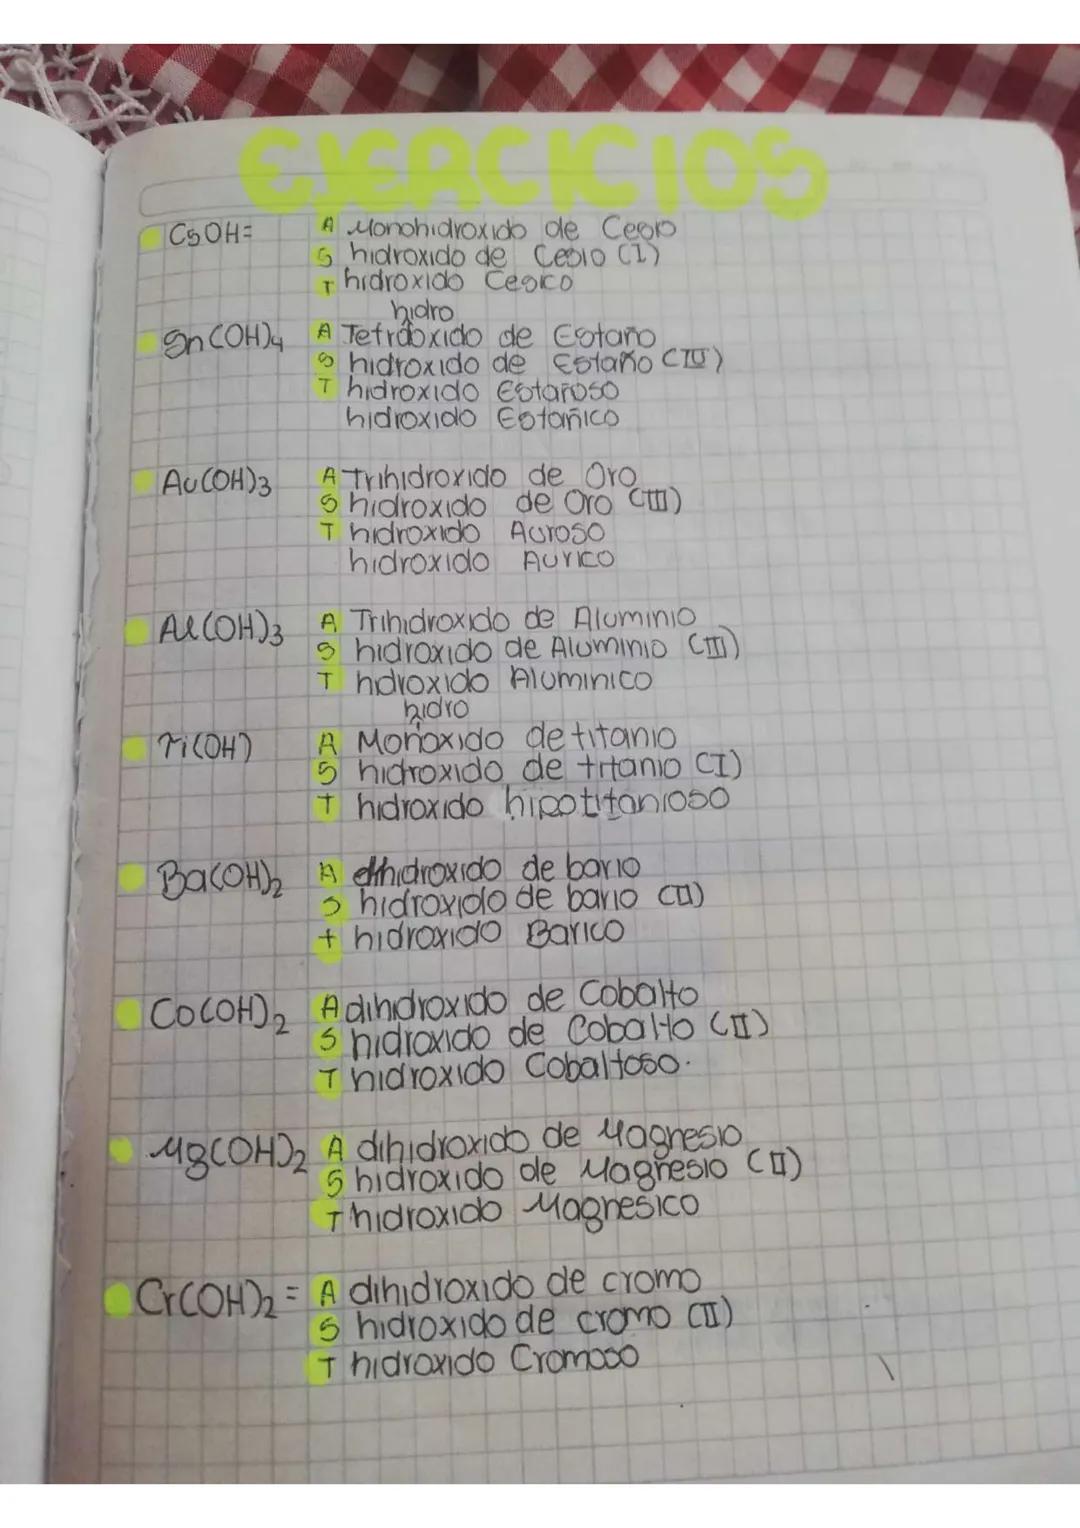 EJERCICIOS
CsOH= A Monohidroxido de Cesio
S hidroxido de Cesio (I)
T hidroxido Cesico
hidro
Sn(OH)4 A Tetraoxido de Estaño
S hidroxido de Estaño (IV)
T hidroxido Estañoso
hidroxido Estañico
Au(OH)3 A Trihidroxido de Oro
S hidroxido de Oro (III)
T hidroxido Auroso
hidroxido Aurico
Al(OH)3 A Trihidroxido de Aluminio
S hidroxido de Aluminio (III)
T hdroxido Aluminico
hidro
Ti(OH) A Monoxido de titanio
S hidroxido de titanio (I)
T hidroxido hipotitanioso
Ba(OH)2 A dihidroxido de bario
S hidroxido de bario (II)
t hidroxido Barico
Co(OH)2 A dihidroxido de Cobalto
S hidroxido de Cobalto (II)
T hidroxido Cobaltoso.
Mg(OH)2 A dihidroxido de Magnesio
S hidroxido de Magnesio (II)
T hidroxido Magnesico
Cr(OH)2 = A dihidroxido de cromo
S hidroxido de cromo (II)
T hidroxido Cromoso